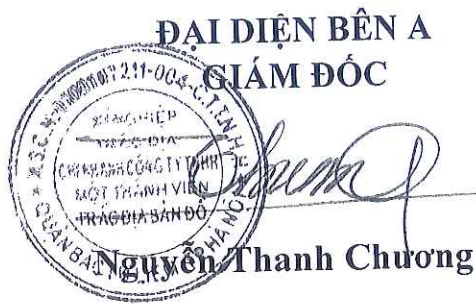 ĐẠI DIỆN BÊN A
GIÁM ĐỐC
XÍ NGHIỆP
TRẮC ĐỊA
CHI NHÁNH CÔNG TY TNHH
MỘT THÀNH VIÊN
TRẮC ĐỊA BẢN ĐỒ
Nguyễn Thanh Chương